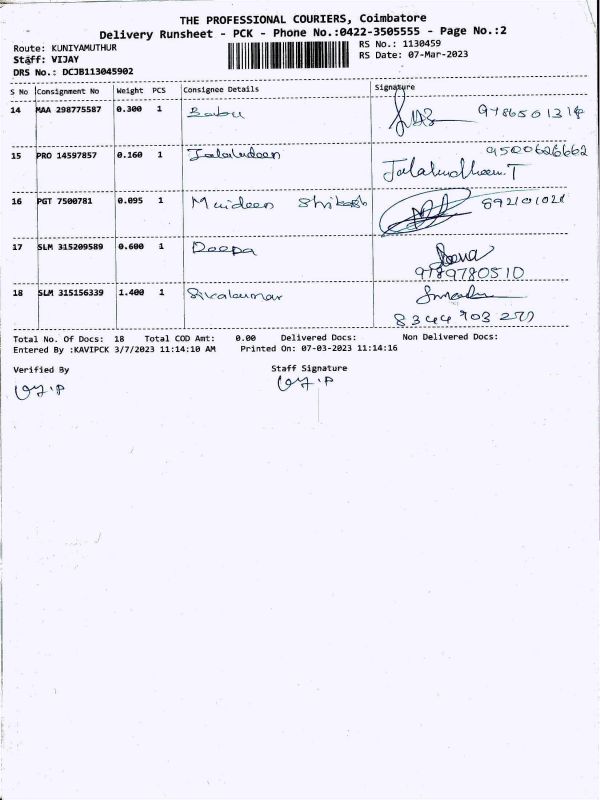 THE PROFESSIONAL COURIERS, Coimbatore
Delivery Runsheet - PCK - Phone No.:0422-3505555 - Page No.:2
Route: KUNIYAMUTHUR
RS No.: 1130459
Staff: VIJAY
RS Date: 07-Mar-2023
DRS No.: DCJB113045902
S No Consignment No Weight PCS Consignee Details Signature
14 MAA 298775587 0.300 1 Babu
15 PRO 14597857 0.160 1 Jalaludeen 9500626662
Jalaludheen.T
16 PGT 7500781 0.095 1 Muideen
17 SLM 315209589 0.600 1 Deepa
9789780510
18 SLM 315156339 1.400 1 Sivakumar
8344 903 277
Total No. Of Docs: 18 Total COD Amt: 0.00 Delivered Docs: Non Delivered Docs:
Entered By :KAVIPCK 3/7/2023 11:14:10 AM Printed On: 07-03-2023 11:14:16
Verified By Staff Signature